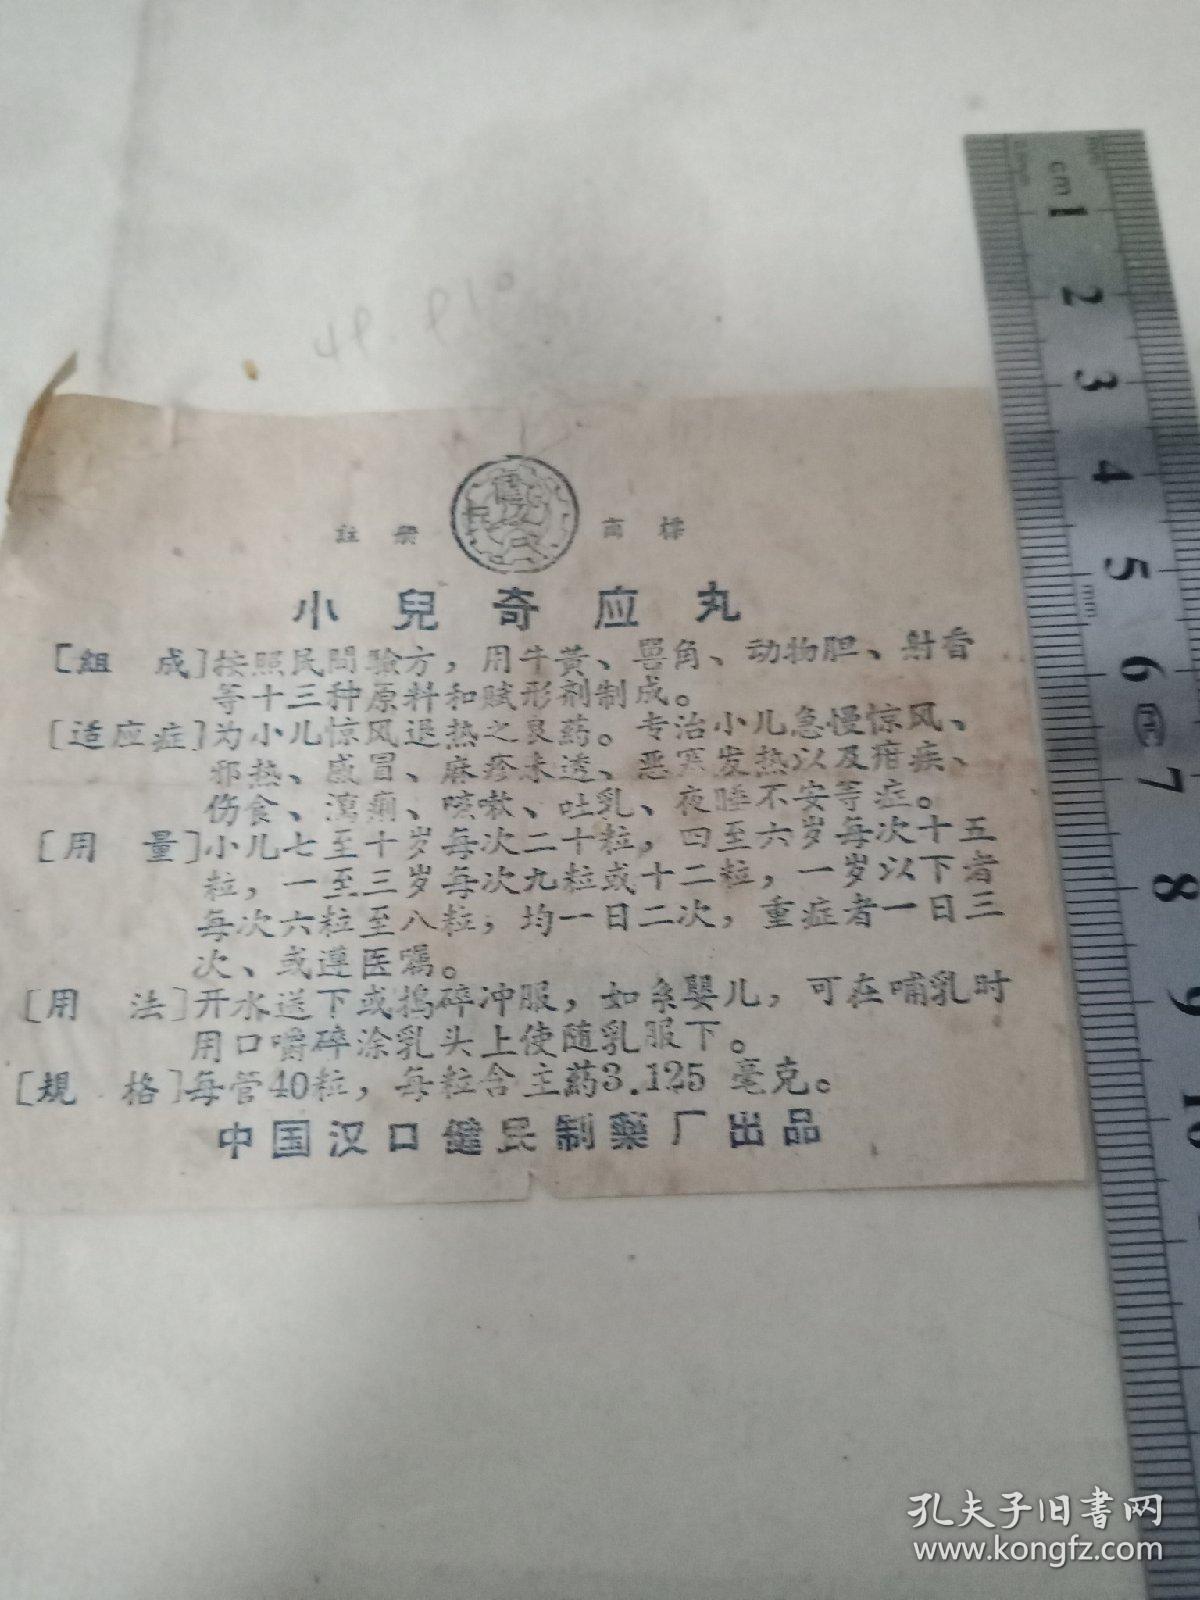 註册 商标
小兒奇应丸
[組 成]按照民間驗方，用牛黃、𤲞角、动物胆、射香
等十三种原料和賦形剂制成。
[适应症]为小儿惊风退热之良药。专治小儿急慢惊风、
邪热、感冒、麻疹未透、恶寒发热以及疳疾、
伤食、瀉痢、咳嗽、吐乳、夜睡不安等症。
[用 量]小儿七至十岁每次二十粒，四至六岁每次十五
粒，一至三岁每次九粒或十二粒，一岁以下者
每次六粒至八粒，均一日二次，重症者一日三
次、或遵医嘱。
[用 法]开水送下或搗碎冲服，如系嬰儿，可在哺乳时
用口嚼碎涂乳头上使随乳服下。
[規 格]每管40粒，每粒含主葯3.125 毫克。
中国汉口健民制藥厂出品
cm
1
2
3
4
5
mm
6
7
8
9
10
孔夫子旧书网
www.kongfz.com